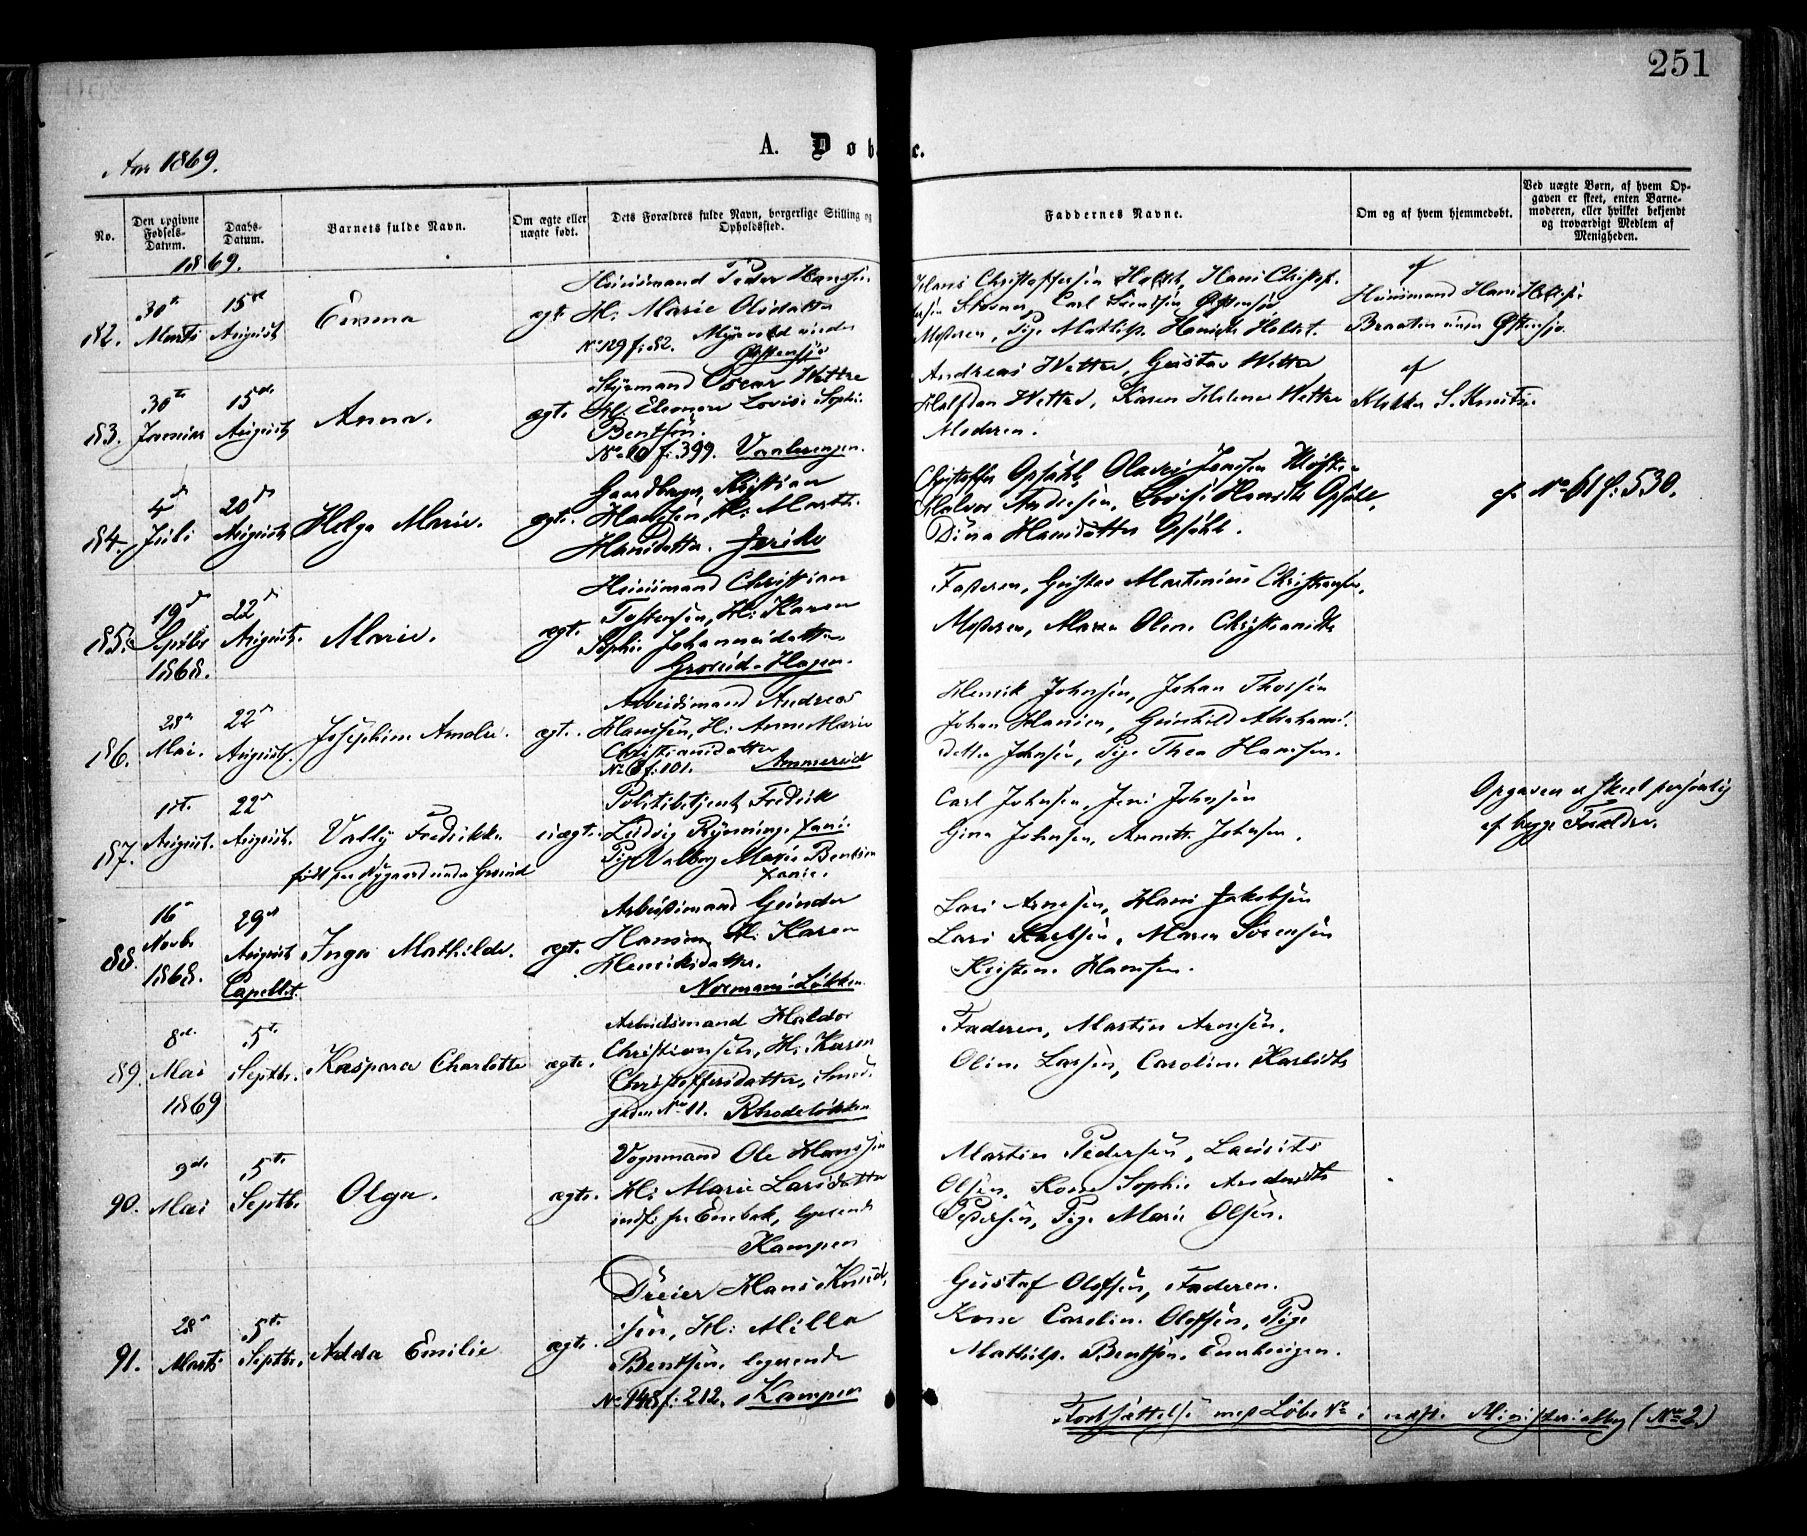 251
Aar 1869.
A. Døb c.
No.
Den opgivne Fødsels-Datum.
Daabs-Datum.
Barnets fulde Navn.
Om ægte eller uægte født.
Dets Forældres fulde Navn, borgerlige Stilling og Opholdssted.
Faddernes Navne.
Om og af hvem hjemmedøbt.
Ved uægte Børn, af hvem Opgaven er skeet, enten Barnemoderen, eller hvilket bekjendt og troværdigt Medlem af Menigheden.
1869.
82.
30te Marts
15de August
Emma
ægt.
Huusmand Peder Hanssen
H. Marie Olsdatter
No 129 f. 82. Myrvold under
Østensjø
Hans Christophersen Holsth, Hans Christof-
Carl Svensen Østensjø
Mosteren, Pige Mathilde Hansdtr Holst.
af
Huusmand Hans
Braaten under Østensjø.
83.
30te Januar
15de August
Anna.
ægt.
Styrmand Oscar Wettre
H. Eleonore Lovise Sophie
Bentsen.
No 10 f. 399. Vaalerengen.
Andreas Wettre, Gustav Wettre
Halfdan Wettre, Karen Helene Wettre
Moderen.
af
84.
4de Juli
20de August
Helga Marie.
ægt.
Gaardbruger Kristian
Hansen, H. Marte
Hansdatter. Jeriko
Christoffer Opsahl, Olaves Jensen
Halvor Andresen, Lovise Hansdtr Opsahl,
Dina Hansdatter Opsahl.
cfr No 61 f. 530.
85.
19de Septbr 1868.
22de August.
Marie.
ægt.
Huusmand Christian
Tostensen, H. Karen
Sophie Johannesdatter
Grorud-Hagen.
Faderen, Gustav Martinius Christensen,
Mosteren, Maren Oline Christiansdtr
86.
28de Mai.
22de August.
Josephine Amalie.
ægt.
Arbeidsmand Andreas
Hanssen, H. Anne Marie
Christiansdatter
No 6 f. 101. Ammerud
Henrik Johnsen, Johan Thorsen
Johan Hansen, Gunhild Abrahams-
datter Johnsen, Pige Thea Hanssen.
87.
1ste August.
22de August.
Valby Fredrikke.
født paa Nygaard under Grorud
uægte.
Politibetjent Fredrik
Ludvig Rynning,
Pige Valborg Marie Bentsen
Carl Johnsen, Jens Johnsen
Gina Johnsen, Annette Johnsen.
Opgaven er skeet personlig
af begge Forældre.
88.
16de Novbr 1868.
29de August Capellet.
Inga Mathilde.
ægt.
Arbeidsmand Gunder
Hansen, H. Karen
Henriksdatter.
Normans-Løkken
Lars Arnesen, Hans Jakobsen
Lars Karlsen, Maren Sørensen
Kristine Hanssen.
89.
8de Mai 1869
5te Septbr.
Kaspara Charlotte
ægte.
Arbeidsmand Haldor
Christiansen, H. Karen
Christoffersdatter, Smed-
gaden No 11. Rhodeløkken
Faderen, Martin Arnesen.
Oline Larsen, Caroline Karlsdtr
90.
9de Mai
5te Septbr.
Olga.
ægte.
Vognmand Ole Hanssen
H. Marie Larsdatter
indf. fra Enebak, logerende
Kampen
Martin Pedersen, Laurits
Olsen, Kone Sophie Andersdtr
Pedersen, Pige Marie Olsen.
91.
28de Marts
5te Septbr.
Adda Emilie
ægte.
Dreier Hans Knud-
sen, H. Milla
Bentsen, logerende
No 148 f. 212. Kampen
Gustaf Olofsen, Faderen.
Kone Carolin. Olofsen, Pige
Mathilde Bentsen,
Fortsættelse med Løbe No i nyt Ministerialbog (No 2.)